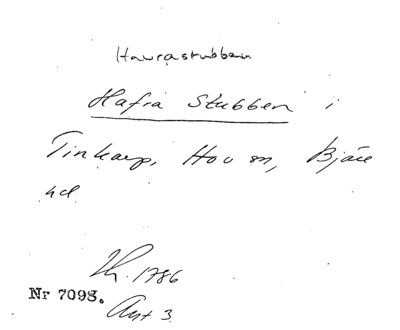 Havrastubben
Hafra Stubben i
Tinkarp, Hov sn, Bjäre
hd
Lh. 1786
Nr 7098.
Akt 3